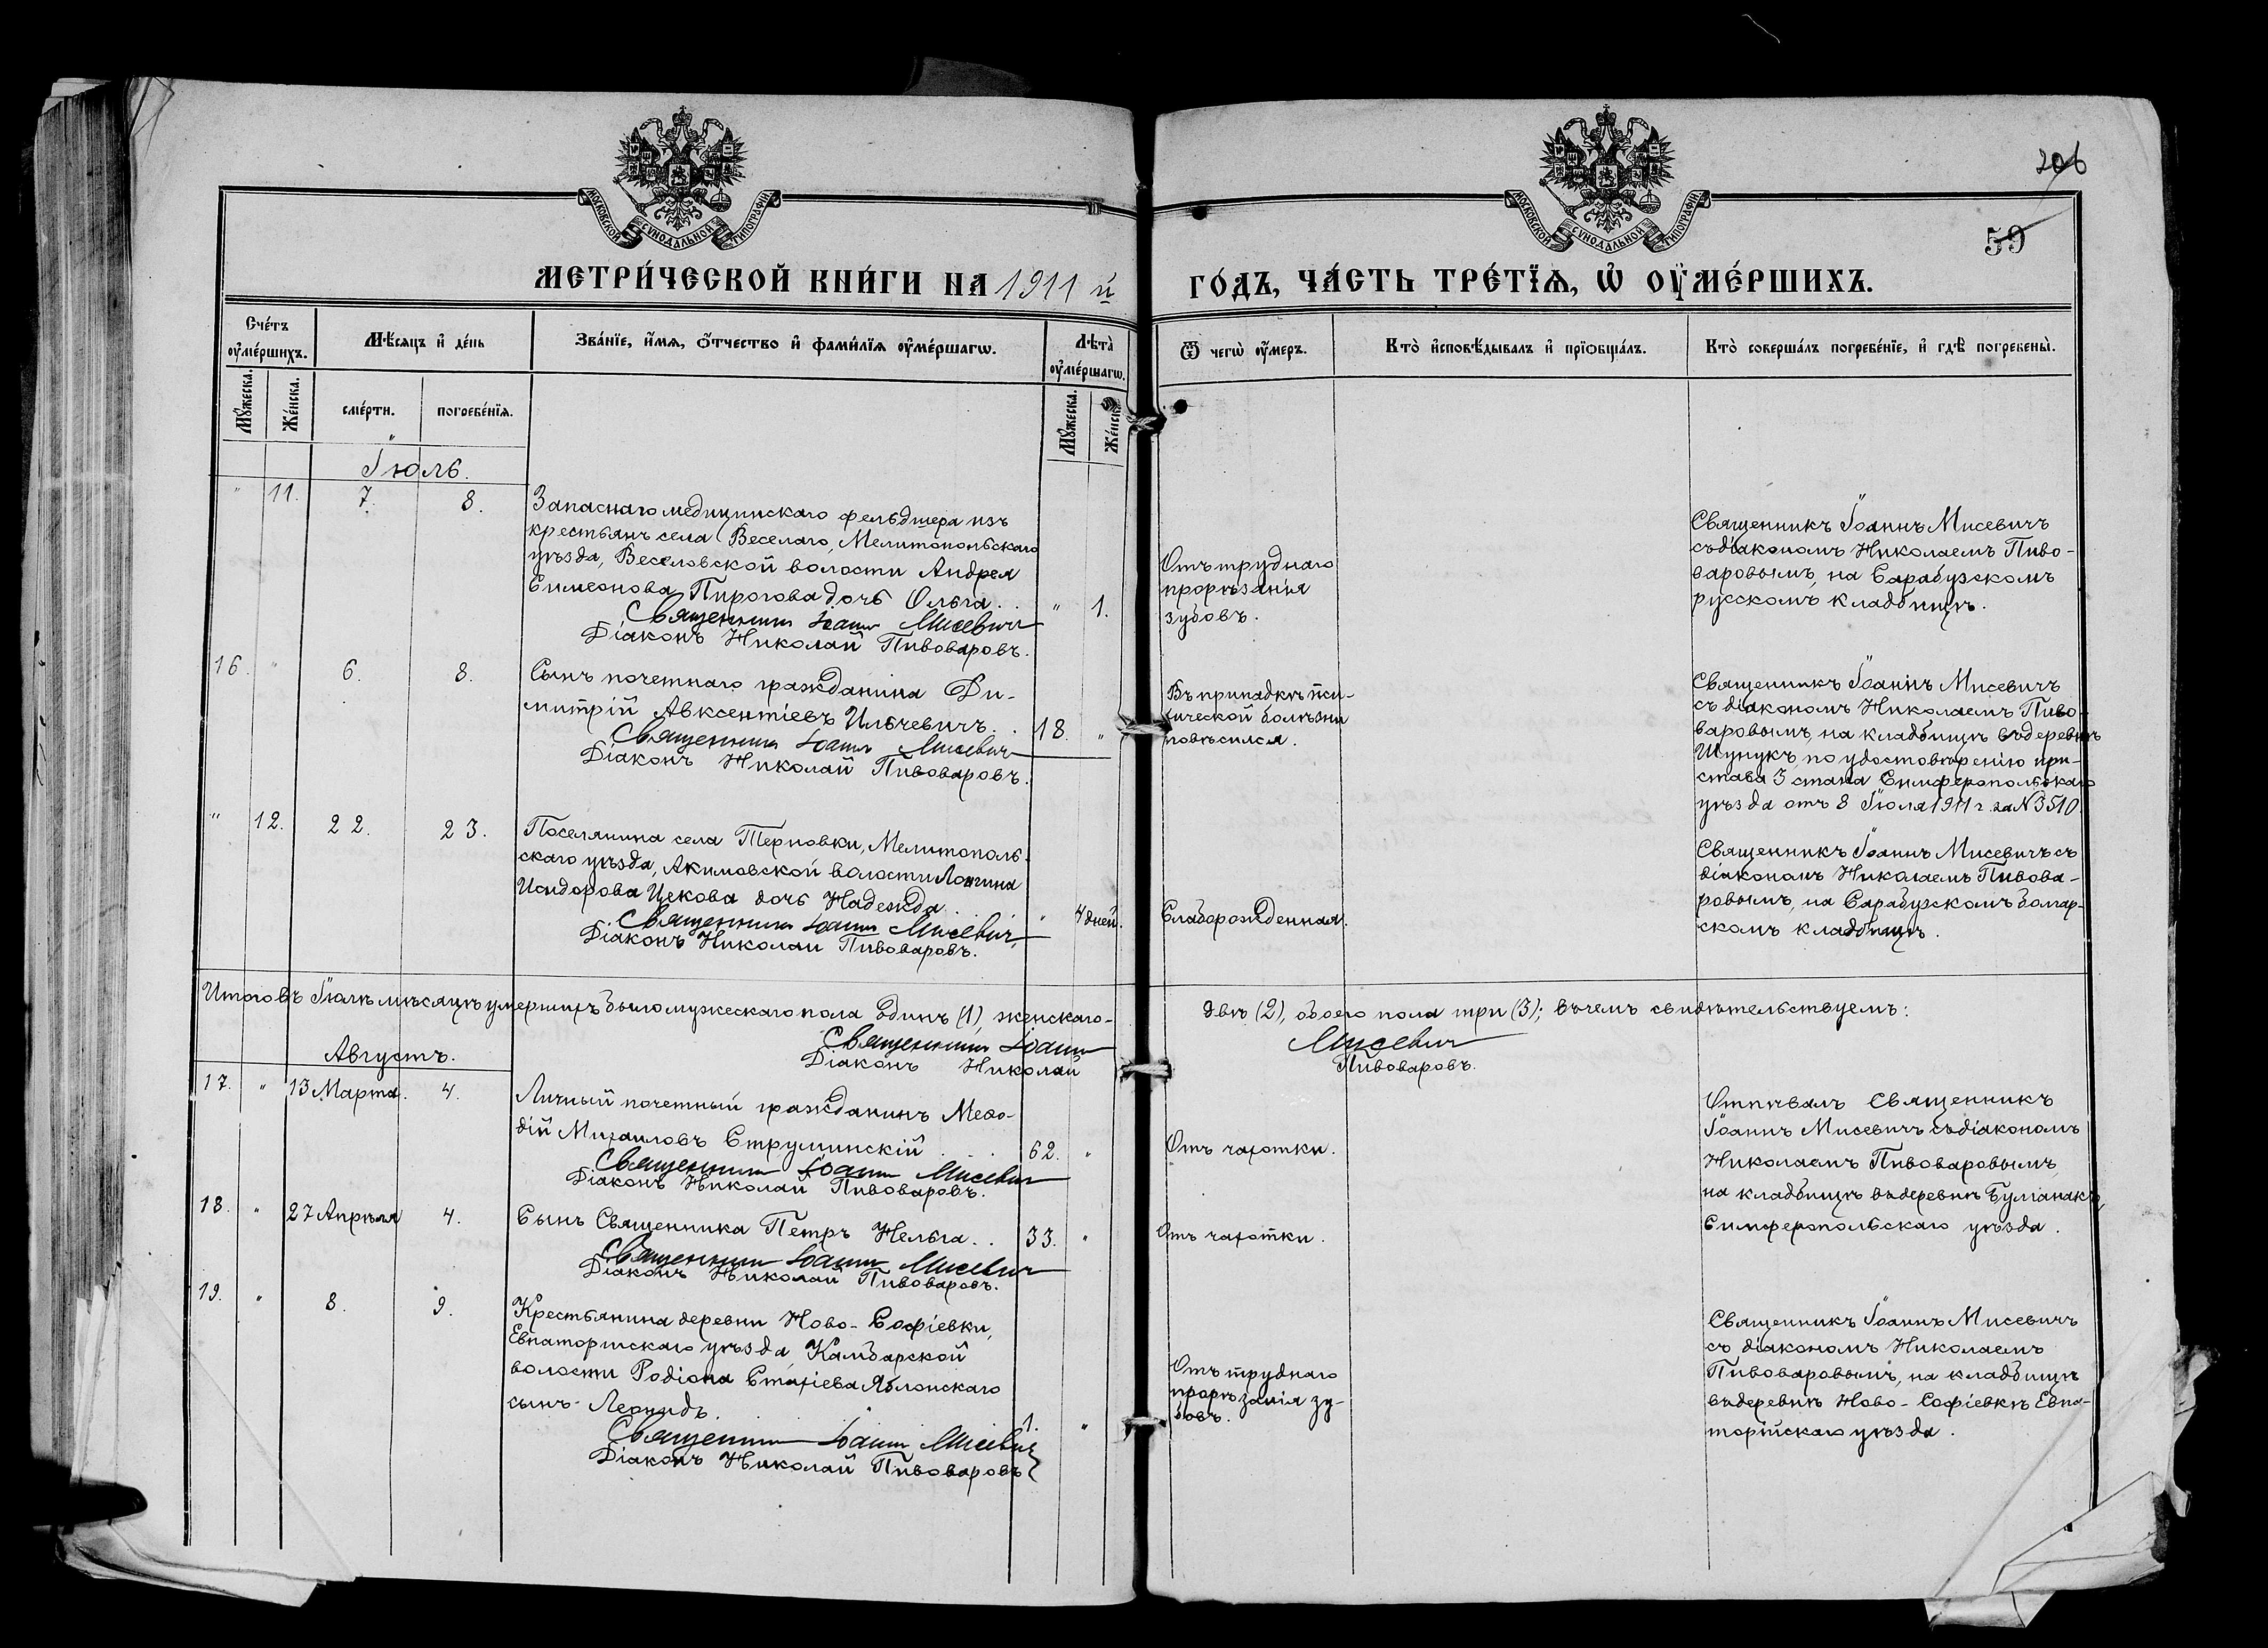 206
59
МОСКОВСКОЙ СУНОДАЛЬНОЙ ТИПОГРАФІИ
МОСКОВСКОЙ СУНОДАЛЬНОЙ ТИПОГРАФІИ
МЕТРИ́ЧЕСКОЙ КНИ́ГИ НА 1911 й
ГО́ДЪ, ЧА́СТЬ ТРЕ́ТЇѦ, Ѡ҆ ОУ҆МЕ́РШИХЪ.
Сче́тъ оу҆ме́ршихъ.
Мꙋ́жеска.
Же́нска.
Мѣ́сяцъ и҆ де́нь
сме́рти.
погребе́нїѧ.
Зва́нїе, и҆́мѧ, ѻ҆́тчество и҆ фами́лїѧ оу҆ме́ршагѡ.
Лѣ́та оу҆ме́ршагѡ.
Мꙋ́жеска.
Же́нска.
Ѿ чегѡ̀ оу҆́меръ.
Кто̀ и҆сповѣ́дывалъ и҆ прїѡбща́лъ.
Кто̀ соверша́лъ погребе́нїе, и҆ гдѣ̀ погребены̀.
Іюль.
" 11. 7. 8.
Запаснаго медицинскаго фельдшера изъ
крестьянъ села Веселаго, Мелитопольскаго
уѣзда, Веселовской волости Андрея
Симеонова Пирогова дочь Ольга . .
" 1.
Священникъ Іоаннъ Мисевичъ
Діаконъ Николай Пивоваровъ.
Отъ труднаго
прорѣзанія
зубовъ.
Священникъ Іоаннъ Мисевичъ
съ діакономъ Николаемъ Пиво-
варовымъ, на Сарабузскомъ
русскомъ кладбищѣ.
16. " 6. 8.
Сынъ почетнаго гражданина Ди-
митрій Авксентіевъ Ильчевичъ . .
18. "
Священникъ Іоаннъ Мисевичъ
Діаконъ Николай Пивоваровъ.
Въ припадкѣ пси-
хической болѣзни
повѣсился.
Священникъ Іоаннъ Мисевичъ
съ діакономъ Николаемъ Пиво-
варовымъ, на кладбищѣ въ деревнѣ
Шунукъ, по удостовѣренію при-
става 3 стана Симферопольскаго
уѣзда отъ 8 Іюля 1911 г. за № 3510.
" 12. 22. 23.
Поселянина села Терновки, Мелитополь-
скаго уѣзда, Акимовской волости Лонгина
Исидорова Цекова дочь Надежда .
" 4 дней.
Священникъ Іоаннъ Мисевичъ
Діаконъ Николай Пивоваровъ.
Слаборожденная.
Священникъ Іоаннъ Мисевичъ съ
діакономъ Николаемъ Пивова-
ровымъ, на Сарабузскомъ болгар-
скомъ кладбищѣ.
Итого въ Іюлѣ мѣсяцѣ умершихъ было мужескаго пола одинъ (1), женскаго-
двѣ (2), обоего пола три (3); въ чемъ свидѣтельствуемъ:
Священникъ Іоаннъ Мисевичъ
Діаконъ Николай Пивоваровъ.
Августъ.
17. " 13 Марта. 4.
Личный почетный гражданинъ Меѳо-
дій Михаиловъ Струминскій . .
62. "
Священникъ Іоаннъ Мисевичъ
Діаконъ Николай Пивоваровъ.
Отъ чахотки.
Отпѣвалъ Священникъ
Іоаннъ Мисевичъ съ діакономъ
Николаемъ Пивоваровымъ,
на кладбищѣ въ деревнѣ Булганакъ,
Симферопольскаго уѣзда.
18. " 27 Апрѣля 4.
Сынъ Священника Петръ Нельга . .
33. "
Священникъ Іоаннъ Мисевичъ
Діаконъ Николай Пивоваровъ.
Отъ чахотки.
19. " 8. 9.
Крестьянина деревни Ново-Софіевки,
Евпаторійскаго уѣзда, Камбарской
волости Родіона Стахіева Яблонскаго
сынъ Леонидъ.
1. "
Священникъ Іоаннъ Мисевичъ
Діаконъ Николай Пивоваровъ
Отъ труднаго
прорѣзанія зу-
бовъ.
Священникъ Іоаннъ Мисевичъ
съ діакономъ Николаемъ
Пивоваровымъ, на кладбищѣ
въ деревнѣ Ново-Софіевкѣ Евпа-
торійскаго уѣзда.